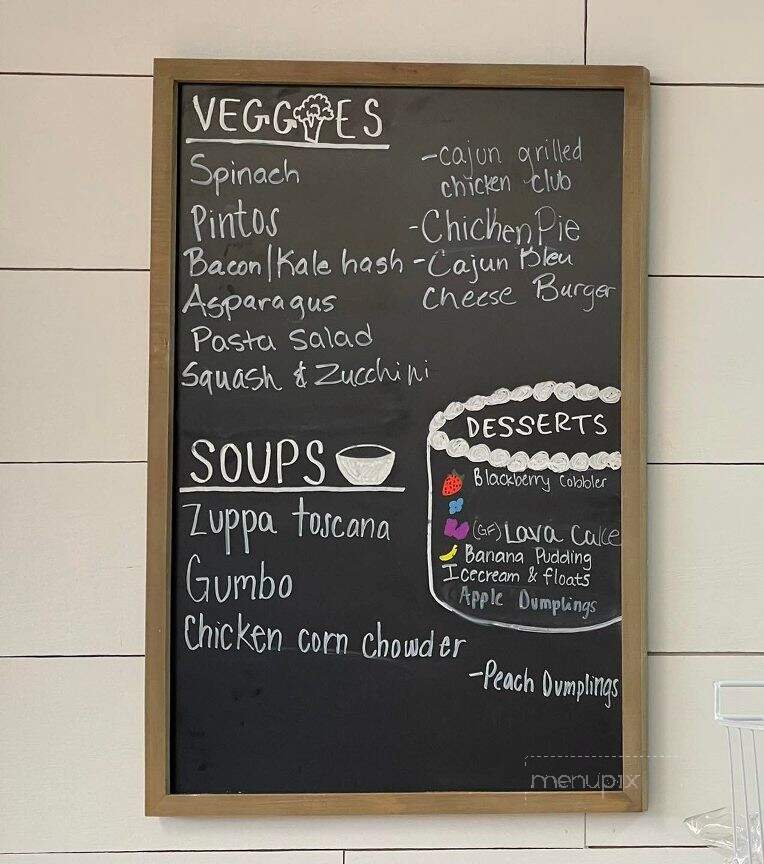 VEGGIES
Spinach
Pintos
Bacon/Kale hash
Asparagus
Pasta Salad
Squash & Zucchini
-cajun grilled
chicken club
-Chicken Pie
-Cajun Bleu
Cheese Burger
SOUPS
Zuppa toscana
Gumbo
Chicken corn chowder
DESSERTS
Blackberry Cobbler
(GF) Lava Cake
Banana Pudding
Icecream & floats
Apple Dumplings
-Peach Dumplings
menupix